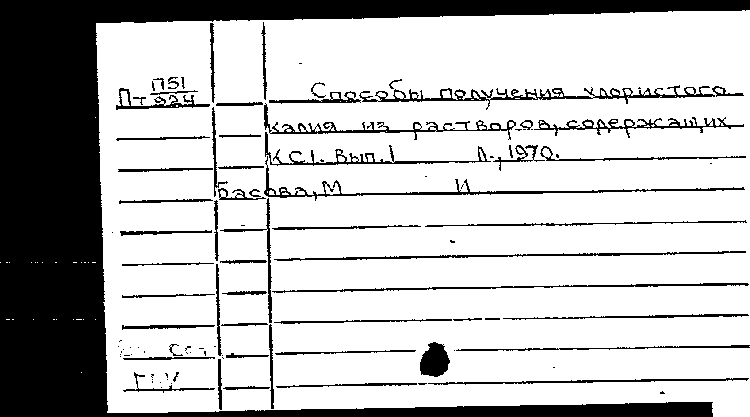 Пт П51/924
Способы получения хлористого
калия из растворов, содержащих
КCl. Вып. 1 Л., 1970.
Басова, М И